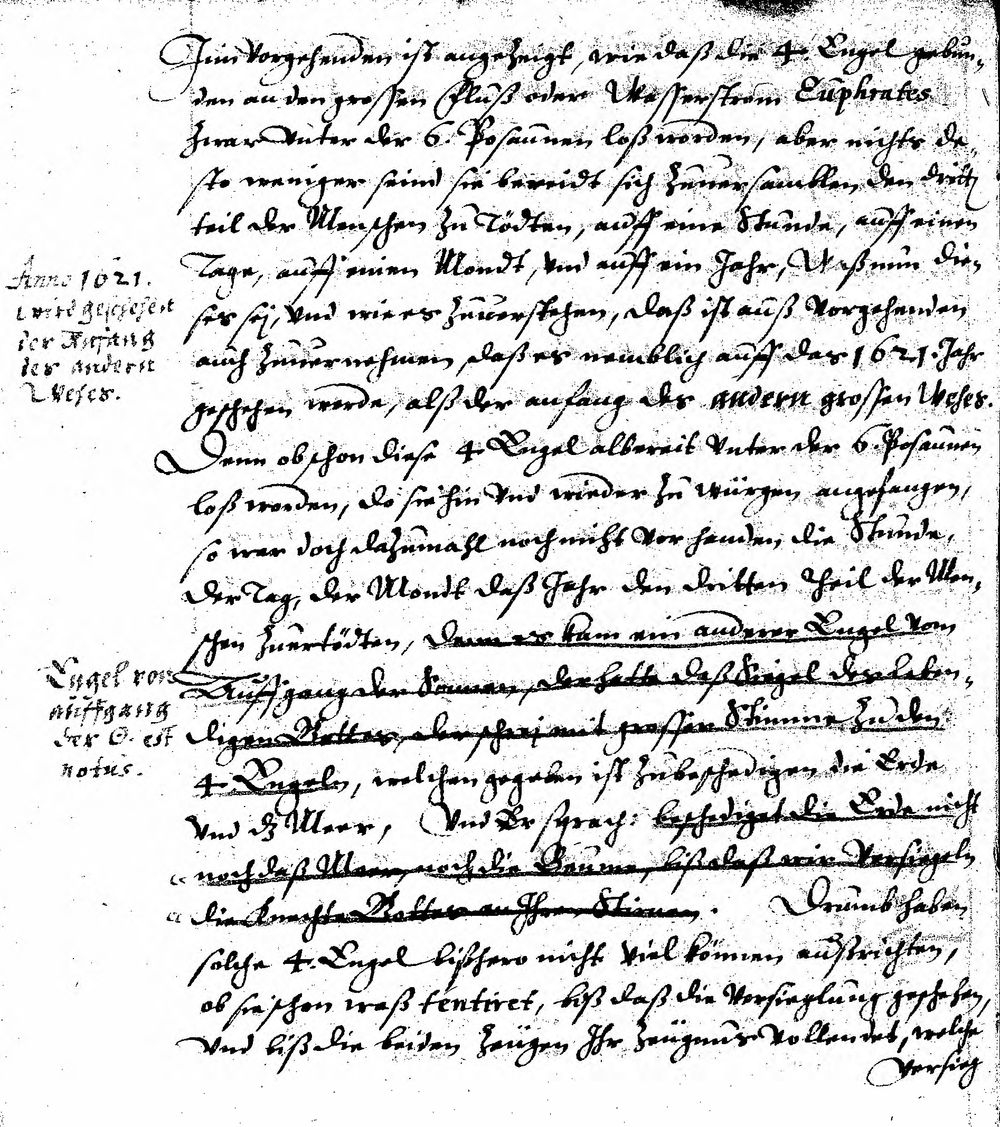 Im Vorgehenden ist angezeigt, wie daß die 4. Engel gebun-
den an den grossen Fluß oder Wasserstrom Euphrates
zwar Vnter der 6. Posaunen loß worden, aber nichts de-
sto weniger seind sie bereidt sich zuuersamblen den dritt
teil der Menschen zu Tödten, auff eine Stunde, auff einen
Tage, auff einen Mondt, vnd auff ein Jahr, Waß nun die-
ses sej, Vnd wie es zuuerstehen, daß ist auß Vorgehenden
Anno 1621.
wird geschehen
der Anfang
des andern
Wehes.
auch zuuernehmen, daß es nemblich auff das 1621. Jahr
geschehen werde, alß der anfang des andern grossen Wehes.
Denn obschon diese 4. Engel albereit Vnter der 6. Posaunen
loß worden, do sie hin Vnd wieder zu würgen angefangen,
so war doch dazumahl noch nicht Vorhanden, die Stunde,
der Tag, der Mondt daß Jahr den dritten Theil der Men-
schen zuertödten, denn es kam ein anderer Engel vom
Auffgang der Sonnen, der hatte daß Siegel des leben-
digen Gottes, der schrej mit grosser Stimme zu den
Engel von
auffgang
der ☉. est
notus.
4. Engeln, welchen gegeben ist zubeschedigen die Erde
Vnd dz Meer, Vnd Er sprach: beschediget die Erde nicht
noch daß Meer, noch die Beume, biß daß wir Versiegeln
die Knechte Gottes an Ihren Stirnen. Drumb haben
solche 4. Engel bißhero nicht Viel können außrichten,
ob sie schon waß tentiret, biß daß die Versieglung geschehen,
Vnd biß die beiden Zeugen Ihr Zeugnus Vollendet, welche
Versieg